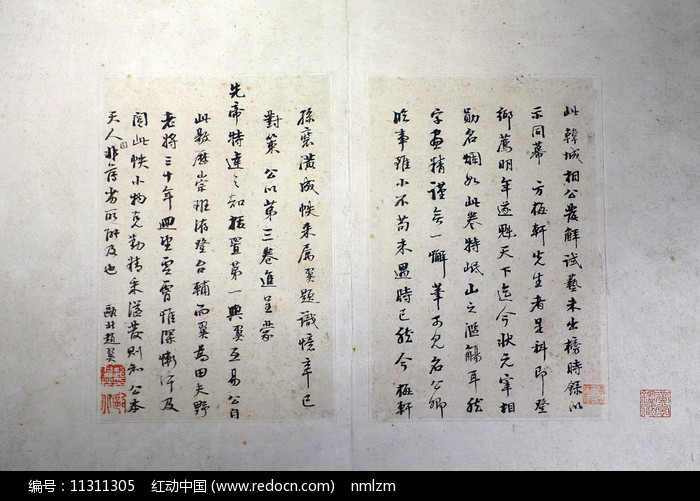 此韓城相公發解試藝未出榜時錄以
示同幕方梅軒先生者是科即登
鄉薦明年遂魁天下迄今狀元宰相
勛名爛如此卷特岷山之濫觴耳然
字畫精謹無一懈筆可見名公卿
臨事雖小不苟未遇時已然今梅軒
孫裒潢成帙来屬翼題識憶辛巳
對策公以第三卷進呈蒙
先帝特達之知拔置第一與翼互易公自
此敭歷崇班洊登台輔而翼為田夫野
老將三十年迴望雲霄惟深慚汗及
閱此帙小物克勤精采溢發則知公本
天人固非庸劣所及也
甌北趙翼
编号：11311305 红动中国 (www.redocn.com) nmlzm